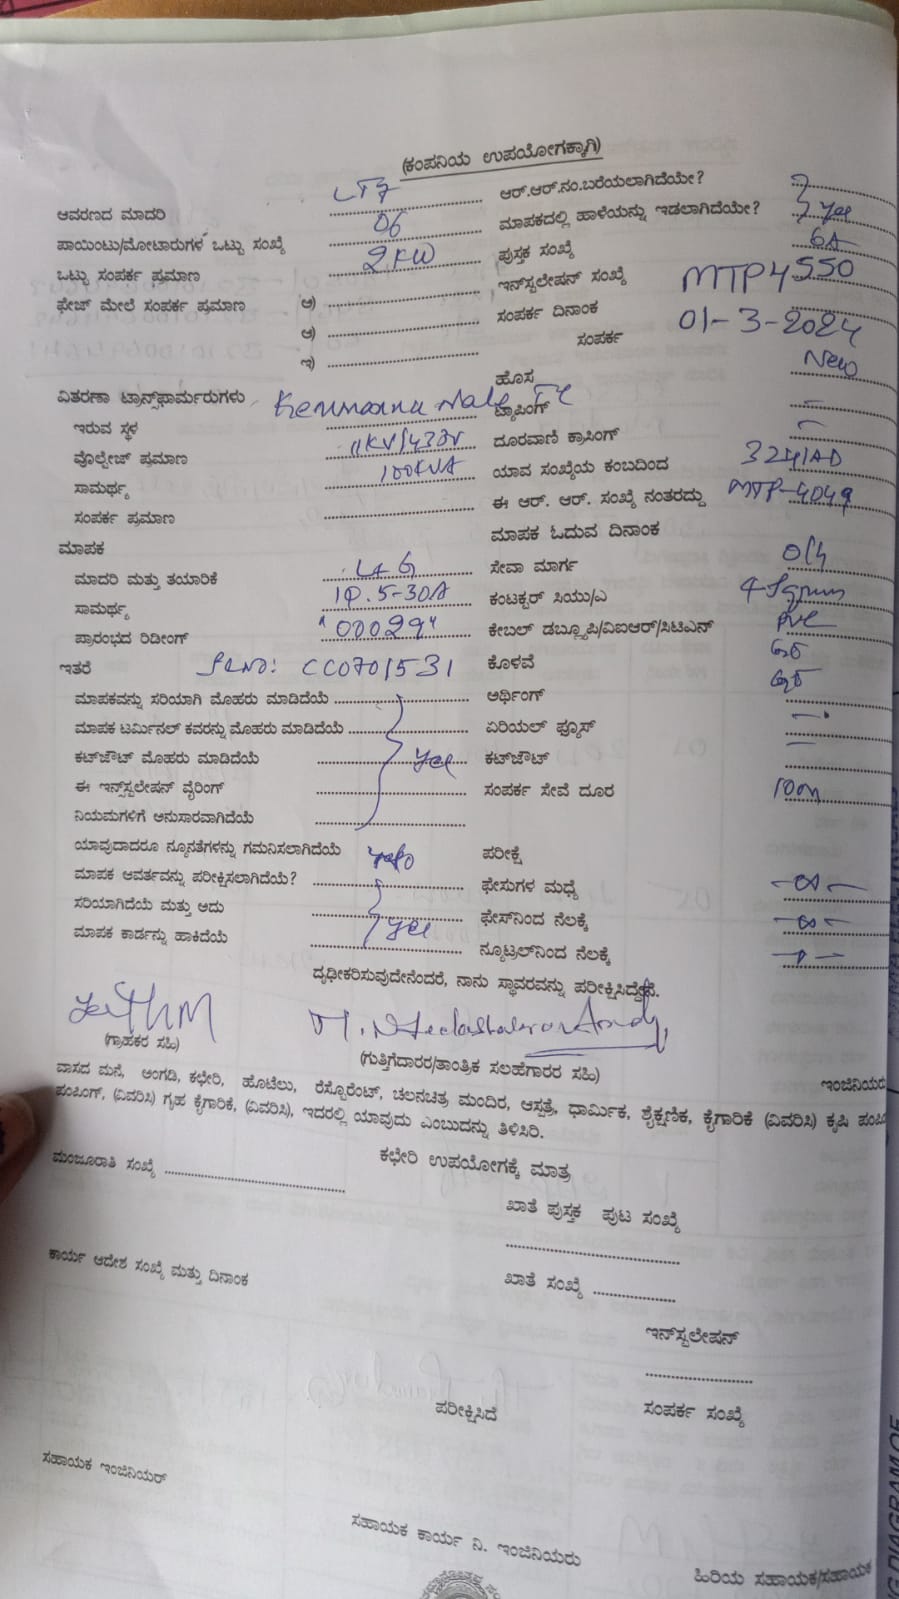 (ಕಂಪನಿಯ ಉಪಯೋಗಕ್ಕಾಗಿ)
ಆವರಣದ ಮಾದರಿ LT7
ಆರ್.ಆರ್.ನಂ.ಬರೆಯಲಾಗಿದೆಯೇ?
ಪಾಯಿಂಟು/ಮೋಟಾರುಗಳ ಒಟ್ಟು ಸಂಖ್ಯೆ 06
ಮಾಪಕದಲ್ಲಿ ಹಾಳೆಯನ್ನು ಇಡಲಾಗಿದೆಯೇ? yes
ಒಟ್ಟು ಸಂಪರ್ಕ ಪ್ರಮಾಣ 2KW
ಪುಸ್ತಕ ಸಂಖ್ಯೆ 6A
ಫೇಜ್ ಮೇಲೆ ಸಂಪರ್ಕ ಪ್ರಮಾಣ ಅ)
ಇನ್‌ಸ್ಟಲೇಷನ್ ಸಂಖ್ಯೆ MTP4550
ಆ)
ಸಂಪರ್ಕ ದಿನಾಂಕ 01-3-2024
ಇ)
ಸಂಪರ್ಕ
ಹೊಸ New
ವಿತರಣಾ ಟ್ರಾನ್ಸ್‌ಫಾರ್ಮರುಗಳು
ಟ್ಯಾಪಿಂಗ್ –
ಇರುವ ಸ್ಥಳ
ದೂರವಾಣಿ ಕ್ರಾಸಿಂಗ್ –
ವೊಲ್ಟೇಜ್ ಪ್ರಮಾಣ 11KV/433V
ಯಾವ ಸಂಖ್ಯೆಯ ಕಂಬದಿಂದ
ಸಾಮರ್ಥ್ಯ 100KVA
ಈ ಆರ್. ಆರ್. ಸಂಖ್ಯೆ ನಂತರದ್ದು MTP-4049
ಸಂಪರ್ಕ ಪ್ರಮಾಣ
ಮಾಪಕ ಓದುವ ದಿನಾಂಕ
ಮಾಪಕ
ಸೇವಾ ಮಾರ್ಗ O/H
ಮಾದರಿ ಮತ್ತು ತಯಾರಿಕೆ L+G
ಕಂಟಕ್ಟರ್ ಸಿಯು/ಎ 4 Sqmm
ಸಾಮರ್ಥ್ಯ 1Φ. 5-30A
ಕೇಬಲ್ ಡಬ್ಲ್ಯೂಪಿ/ವಿಐಆರ್/ಸಿಟಿಎನ್ PVC
ಪ್ರಾರಂಭದ ರಿಡೀಂಗ್ "00029"
ಕೊಳವೆ
ಇತರೆ SLNO: CC0701531
ಮಾಪಕವನ್ನು ಸರಿಯಾಗಿ ಮೊಹರು ಮಾಡಿದೆಯೆ
ಆರ್ಥಿಂಗ್
ಮಾಪಕ ಟರ್ಮಿನಲ್ ಕವರನ್ನು ಮೊಹರು ಮಾಡಿದೆಯೆ
ಏರಿಯಲ್ ಫ್ಯೂಸ್ –
ಕಟ್‌ಔಟ್ ಮೊಹರು ಮಾಡಿದೆಯೆ yes
ಕಟ್‌ಔಟ್ –
ಈ ಇನ್ಸ್‌ಸ್ಟಲೇಷನ್ ವೈರಿಂಗ್
ಸಂಪರ್ಕ ಸೇವೆ ದೂರ 100m
ನಿಯಮಗಳಿಗೆ ಅನುಸಾರವಾಗಿದೆಯೆ
ಯಾವುದಾದರೂ ನ್ಯೂನತೆಗಳನ್ನು ಗಮನಿಸಲಾಗಿದೆಯೆ
ಪರೀಕ್ಷೆ
ಮಾಪಕ ಆವರ್ತವನ್ನು ಪರೀಕ್ಷಿಸಲಾಗಿದೆಯೆ?
ಫೇಸುಗಳ ಮಧ್ಯೆ –∞–
ಸರಿಯಾಗಿದೆಯೆ ಮತ್ತು ಅದು yes
ಫೇಸ್‌ನಿಂದ ನೆಲಕ್ಕೆ –∞–
ಮಾಪಕ ಕಾರ್ಡನ್ನು ಹಾಕಿದೆಯೆ
ನ್ಯೂಟ್ರಲ್‌ನಿಂದ ನೆಲಕ್ಕೆ –0–
ದೃಢೀಕರಿಸುವುದೇನೆಂದರೆ, ನಾನು ಸ್ಥಾವರವನ್ನು ಪರೀಕ್ಷಿಸಿದ್ದೇನೆ.
(ಗ್ರಾಹಕರ ಸಹಿ)
(ಗುತ್ತಿಗೆದಾರರ/ತಾಂತ್ರಿಕ ಸಲಹೆಗಾರರ ಸಹಿ)
ಇಂಜಿನಿಯರು
ವಾಸದ ಮನೆ, ಅಂಗಡಿ, ಕಛೇರಿ, ಹೊಟೆಲು, ರೆಸ್ಟೊರೆಂಟ್, ಚಲನಚಿತ್ರ ಮಂದಿರ, ಆಸ್ಪತ್ರೆ, ಧಾರ್ಮಿಕ, ಶೈಕ್ಷಣಿಕ, ಕೈಗಾರಿಕೆ (ವಿವರಿಸಿ) ಕೃಷಿ
ಪಂಪಿಂಗ್, (ವಿವರಿಸಿ) ಗೃಹ ಕೈಗಾರಿಕೆ, (ವಿವರಿಸಿ), ಇದರಲ್ಲಿ ಯಾವುದು ಎಂಬುದನ್ನು ತಿಳಿಸಿರಿ.
ಕಛೇರಿ ಉಪಯೋಗಕ್ಕೆ ಮಾತ್ರ
ಮಂಜೂರಾತಿ ಸಂಖ್ಯೆ
ಖಾತೆ ಪುಸ್ತಕ ಪುಟ ಸಂಖ್ಯೆ
ಕಾರ್ಯ ಆದೇಶ ಸಂಖ್ಯೆ ಮತ್ತು ದಿನಾಂಕ
ಖಾತೆ ಸಂಖ್ಯೆ
ಇನ್‌ಸ್ಟಲೇಷನ್
ಪರೀಕ್ಷಿಸಿದೆ
ಸಂಪರ್ಕ ಸಂಖ್ಯೆ
ಸಹಾಯಕ ಇಂಜಿನಿಯರ್
ಸಹಾಯಕ ಕಾರ್ಯ ನಿ. ಇಂಜಿನಿಯರು
ಹಿರಿಯ ಸಹಾಯಕ/ಸಹಾಯಕ